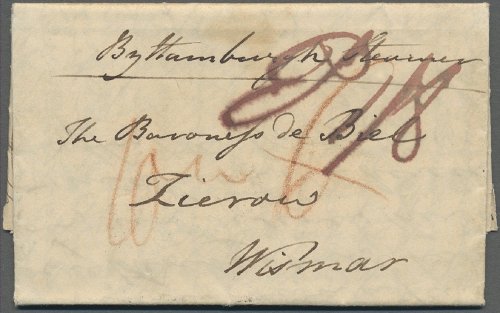 By Hamburgh Steamer
The Baroness de Biel
Zierow
Wismar